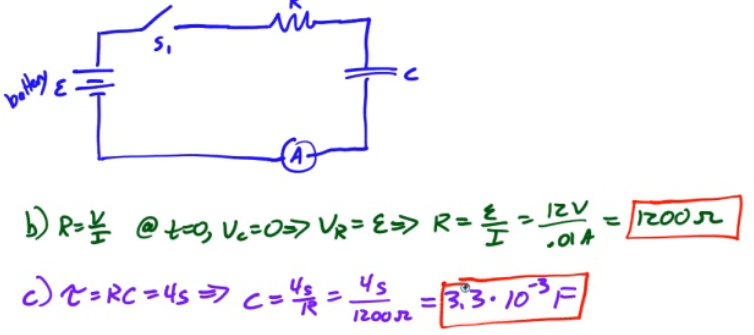 R
S₁
battery ε
C
A
b) R=V/I @ t=0, Vc=0=> VR=ε=> R=ε/I=12V/.01A=1200Ω
c) τ=RC=4s=> C=4s/R=4s/1200Ω=3.3·10⁻³F